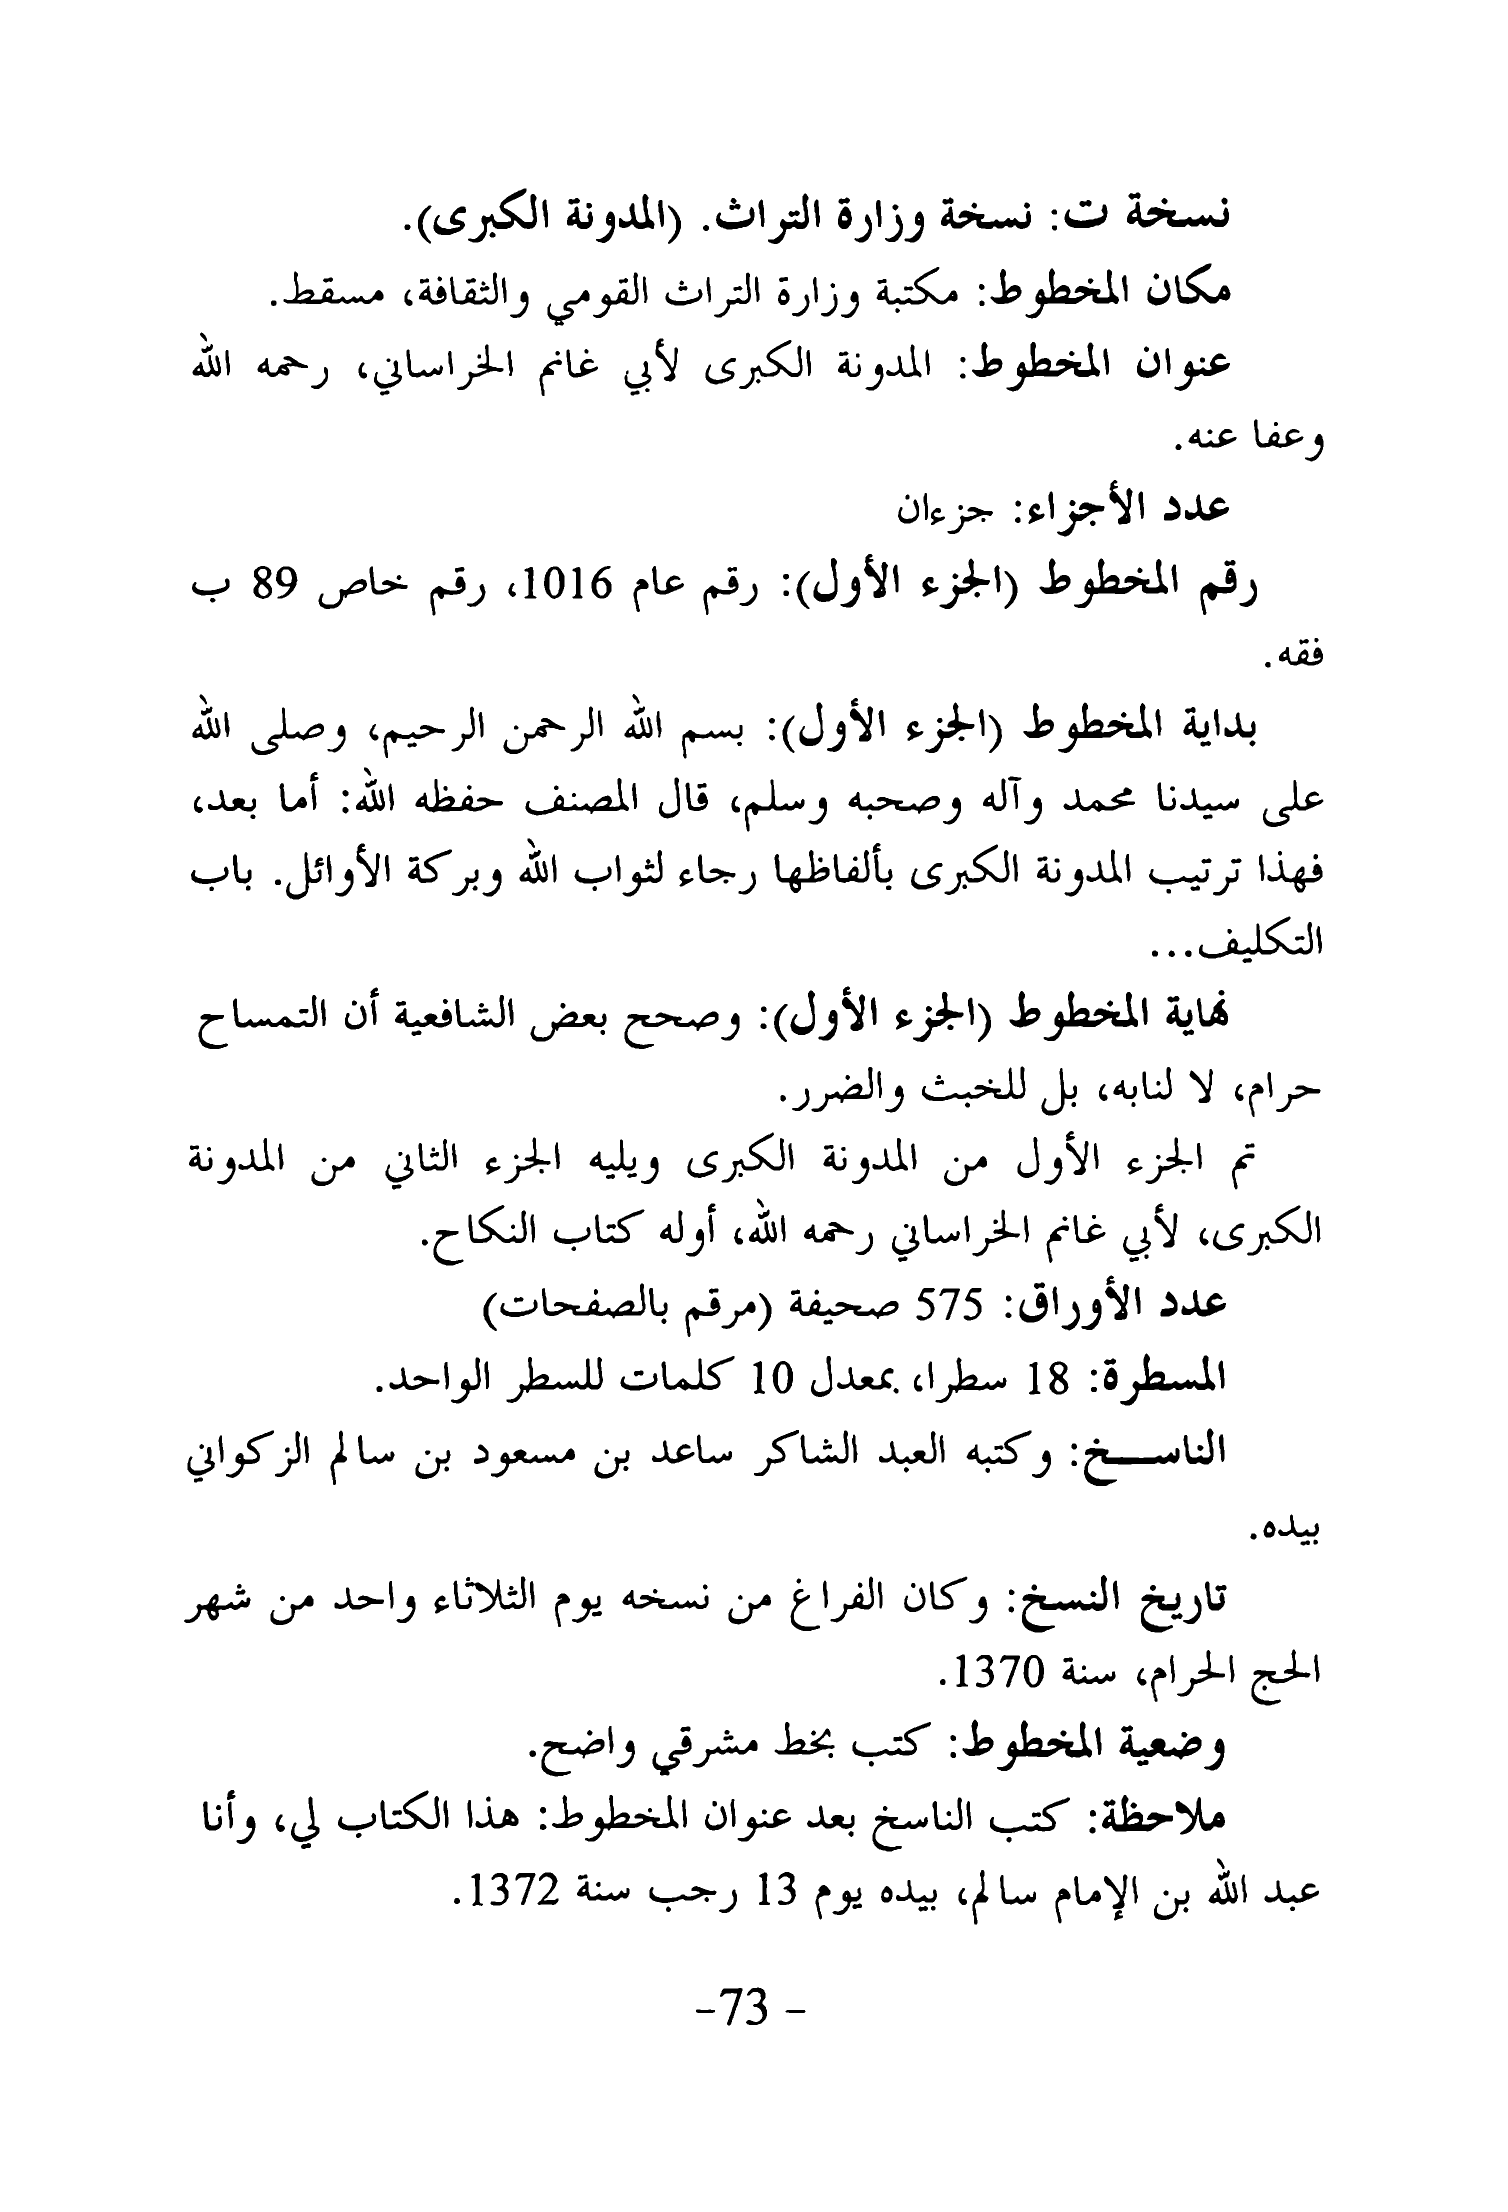 نسخة ت: نسخة وزارة التراث. (المدونة الكبرى).
مكان المخطوط: مكتبة وزارة التراث القومي والثقافة، مسقط.
عنوان المخطوط: المدونة الكبرى لأبي غانم الخراساني، رحمه الله
وعفا عنه.
عدد الأجزاء: جزءان
رقم المخطوط (الجزء الأول): رقم عام 1016، رقم خاص 89 ب
فقه.
بداية المخطوط (الجزء الأول): بسم الله الرحمن الرحيم، وصلى الله
على سيدنا محمد وآله وصحبه وسلم، قال المصنف حفظه الله: أما بعد،
فهذا ترتيب المدونة الكبرى بألفاظها رجاء لثواب الله وبركة الأوائل. باب
التكليف...
نهاية المخطوط (الجزء الأول): وصحح بعض الشافعية أن التمساح
حرام، لا لنابه، بل للخبث والضرر.
تم الجزء الأول من المدونة الكبرى ويليه الجزء الثاني من المدونة
الكبرى، لأبي غانم الخراساني رحمه الله، أوله كتاب النكاح.
عدد الأوراق: 575 صحيفة (مرقم بالصفحات)
المسطرة: 18 سطرا، بمعدل 10 كلمات للسطر الواحد.
الناســـخ: وكتبه العبد الشاكر ساعد بن مسعود بن سالم الزكواني
بيده.
تاريخ النسخ: وكان الفراغ من نسخه يوم الثلاثاء واحد من شهر
الحج الحرام، سنة 1370.
وضعية المخطوط: كتب بخط مشرقي واضح.
ملاحظة: كتب الناسخ بعد عنوان المخطوط: هذا الكتاب لي، وأنا
عبد الله بن الإمام سالم، بيده يوم 13 رجب سنة 1372.
-73 -